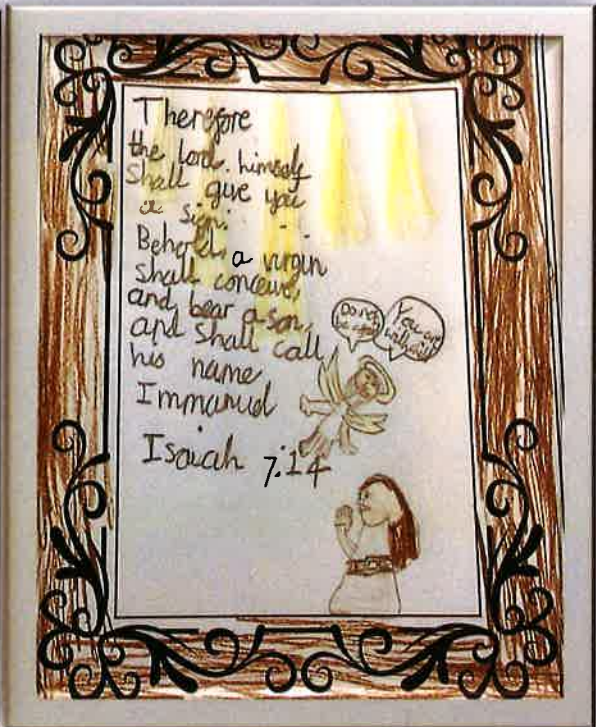 Therefore
the lord himself
Shall give you
a sign.
Behold, a virgin
shall conceive,
and bear a son,
and shall call
his name
Immanuel
Isaiah 7:14
Do not
be
You are
with